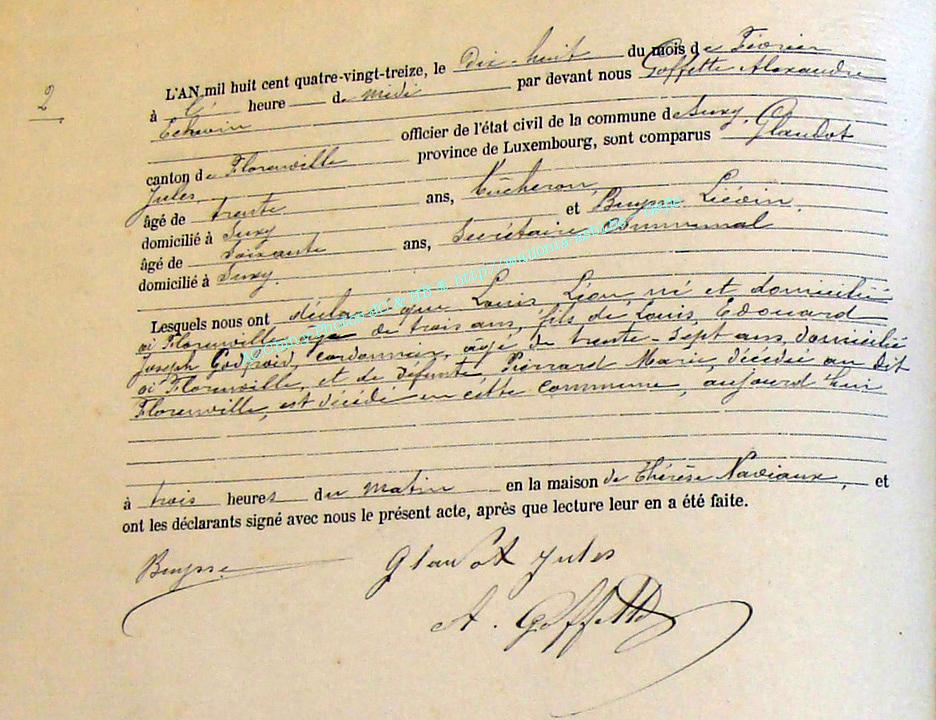 2
L'AN mil huit cent quatre-vingt-treize, le dix-huit du mois de Février
à l' heure de midi par devant nous Goffette Alexandre
Echevin officier de l'état civil de la commune de Suxy,
canton de Florenville province de Luxembourg, sont comparus Glaudot
Jules,
âgé de trente ans, bûcheron,
domicilié à Suxy et Buysse Liévin,
âgé de soixante ans, Secrétaire Communal
domicilié à Suxy.
Lesquels nous ont déclaré que Louis, Léon, né et domicilié
à Florenville, âgé de trois ans, fils de Louis, Edouard
Joseph Godfroid, cordonnier, âgé de trente-sept ans, domicilié
à Florenville, et de défunte Pierrard Marie, décédée au dit
Florenville, est décédé en cette commune, aujourd'hui
à trois heures du matin en la maison de Thérèse Naviaux, et
ont les déclarants signé avec nous le présent acte, après que lecture leur en a été faite.
Buysse Glaudot Jules
A. Goffette